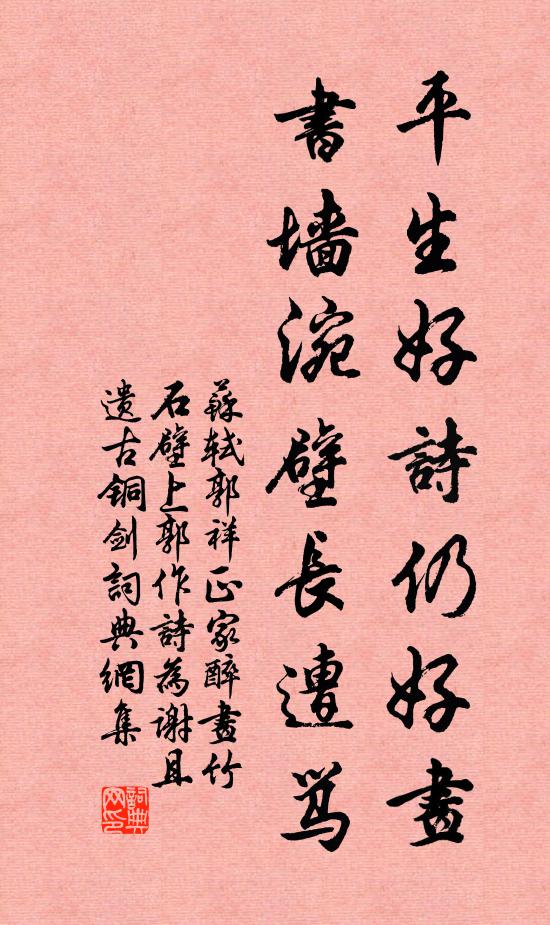 平生好詩仍好畫
書墙涴壁長遭骂
蘇軾郭祥正家醉畫竹
石壁上郭作詩為謝且
遗古銅剑詞典網集
詞典网印